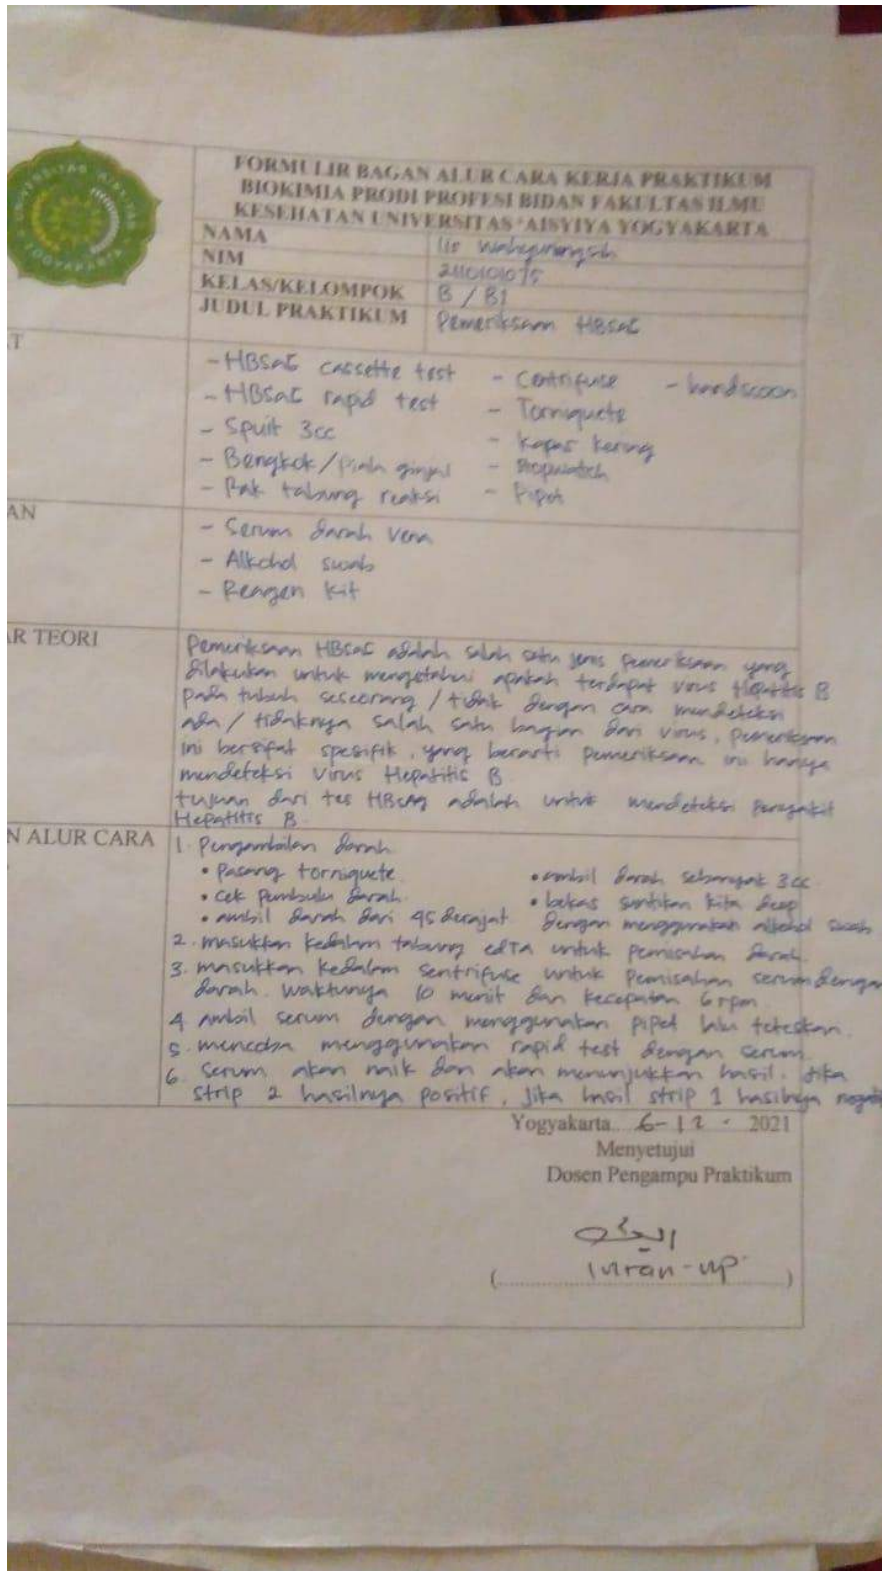 UNIVERSITAS 'AISYIYAH
YOGYAKARTA
FORMULIR BAGAN ALUR CARA KERJA PRAKTIKUM
BIOKIMIA PRODI PROFESI BIDAN FAKULTAS ILMU
KESEHATAN UNIVERSITAS 'AISYIYA YOGYAKARTA
NAMA Iis Wahyuningsih
NIM 2110101075
KELAS/KELOMPOK B / B1
JUDUL PRAKTIKUM Pemeriksaan HBSAG
T
- HBSAG cassette test - Centrifuse - handscoon
- HBSAG rapid test - Torniquete
- Spuit 3cc - Kapas kering
- Bengkok/piala ginjal - Stopwatch
- Rak tabung reaksi - Pipet
AN
- Serum darah vena
- Alkohol swab
- Reagen kit
R TEORI
Pemeriksaan HBSAG adalah salah satu jenis pemeriksaan yang
dilakukan untuk mengetahui apakah terdapat virus Hepatitis B
pada tubuh seseorang / tidak dengan cara mendeteksi
ada / tidaknya salah satu bagian dari virus, pemeriksaan
ini bersifat spesifik, yang berarti pemeriksaan ini hanya
mendeteksi virus Hepatitis B
tujuan dari tes HBSAg adalah untuk mendeteksi penyakit
Hepatitis B.
N ALUR CARA
1. Pengambilan darah
• Pasang torniquete • ambil darah sebanyak 3cc
• Cek pembulu darah. • bekas suntikan kita deep
• ambil darah dari 45 derajat dengan menggunakan alkohol swab
2. masukkan kedalam tabung edTA untuk pemisahan darah.
3. masukkan kedalam sentrifuse untuk pemisahan serum dengan
darah. Waktunya 10 menit dan kecepatan 6 rpm
4 ambil serum dengan menggunakan pipet lalu teteskan.
5. mencoba menggunakan rapid test dengan serum.
6. Serum akan naik dan akan menunjukkan hasil. Jika
strip 2 hasilnya positif, Jika hasil strip 1 hasilnya negatif
Yogyakarta.. 6-12 - 2021
Menyetujui
Dosen Pengampu Praktikum
(..................)